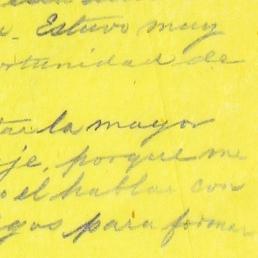 . Estuvo muy
ortunidad de
tar la mayor
je, porque me
o el hablar con
igos para formar